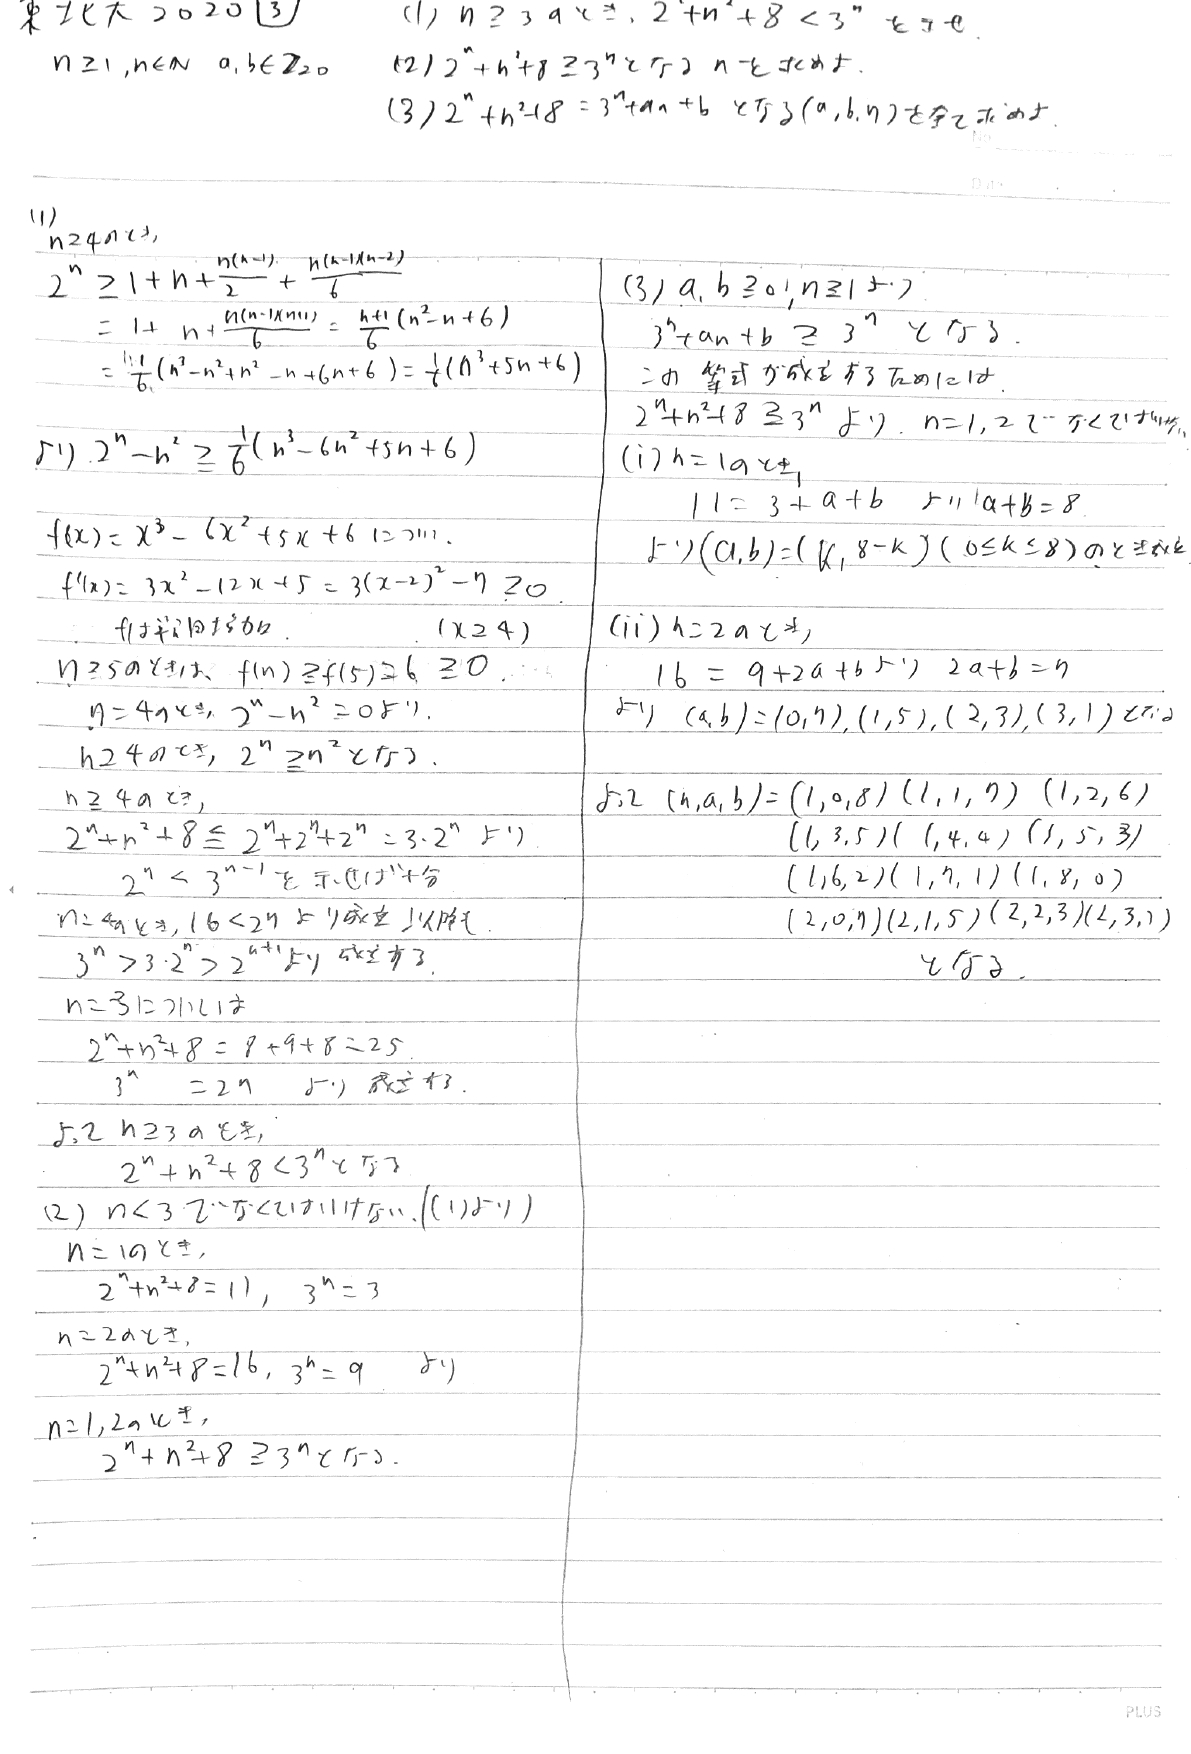 東北大2020 3
(1) n≧3のとき、2^n+n^2+8<3^nを示せ.
n≧1,n∈N a,b∈Z≧0
(2) 2^n+n^2+8≧3^nとなるnを求めよ.
(3) 2^n+n^2+8=3^n+an+bとなる(a,b,n)を全て求めよ.
(1)
n≧4のとき,
2^n≧1+n+n(n-1)/2+n(n-1)(n-2)/6
=1+n+n(n-1)(n+1)/6=(n+1)/6(n^2-n+6)
=1/6(n^3-n^2+n^2-n+6n+6)=1/6(n^3+5n+6)
より 2^n-n^2≧1/6(n^3-6n^2+5n+6)
f(x)=x^3-6x^2+5x+6について.
f'(x)=3x^2-12x+5=3(x-2)^2-7≧0
fは単調増加. (x≧4)
n≧5のときは、f(n)≧f(5)≧6≧0.
n=4のとき, 2^n-n^2=0より.
n≧4のとき, 2^n≧n^2となる.
n≧4のとき,
2^n+n^2+8≦2^n+2^n+2^n=3・2^n より
2^n<3^{n-1}を示せば十分
n=4のとき, 16<27より成立 以降も
3^n>3・2^n>2^{n+1}より成立する.
n=3については
2^n+n^2+8=8+9+8=25
3^n =27 より成立する.
よって n≧3のとき,
2^n+n^2+8<3^nとなる
(2) n<3でなくてはいけない.((1)より)
n=1のとき,
2^n+n^2+8=11, 3^n=3
n=2のとき,
2^n+n^2+8=16, 3^n=9 より
n=1,2のとき,
2^n+n^2+8≧3^nとなる.
(3) a,b≧0,n≧1より
3^n+an+b≧3^n となる.
この等式が成立するためには.
2^n+n^2+8≧3^n より. n=1,2でなくてはいけない
(i) n=1のとき,
11=3+a+b より a+b=8.
より(a,b)=(k,8-k)(0≦k≦8)のとき成立
(ii) n=2のとき,
16=9+2a+bより 2a+b=7
より (a,b)=(0,7),(1,5),(2,3),(3,1)となる
よって (n,a,b)=(1,0,8)(1,1,7)(1,2,6)
(1,3,5)(1,4,4)(1,5,3)
(1,6,2)(1,7,1)(1,8,0)
(2,0,7)(2,1,5)(2,2,3)(2,3,1)
となる.
PLUS